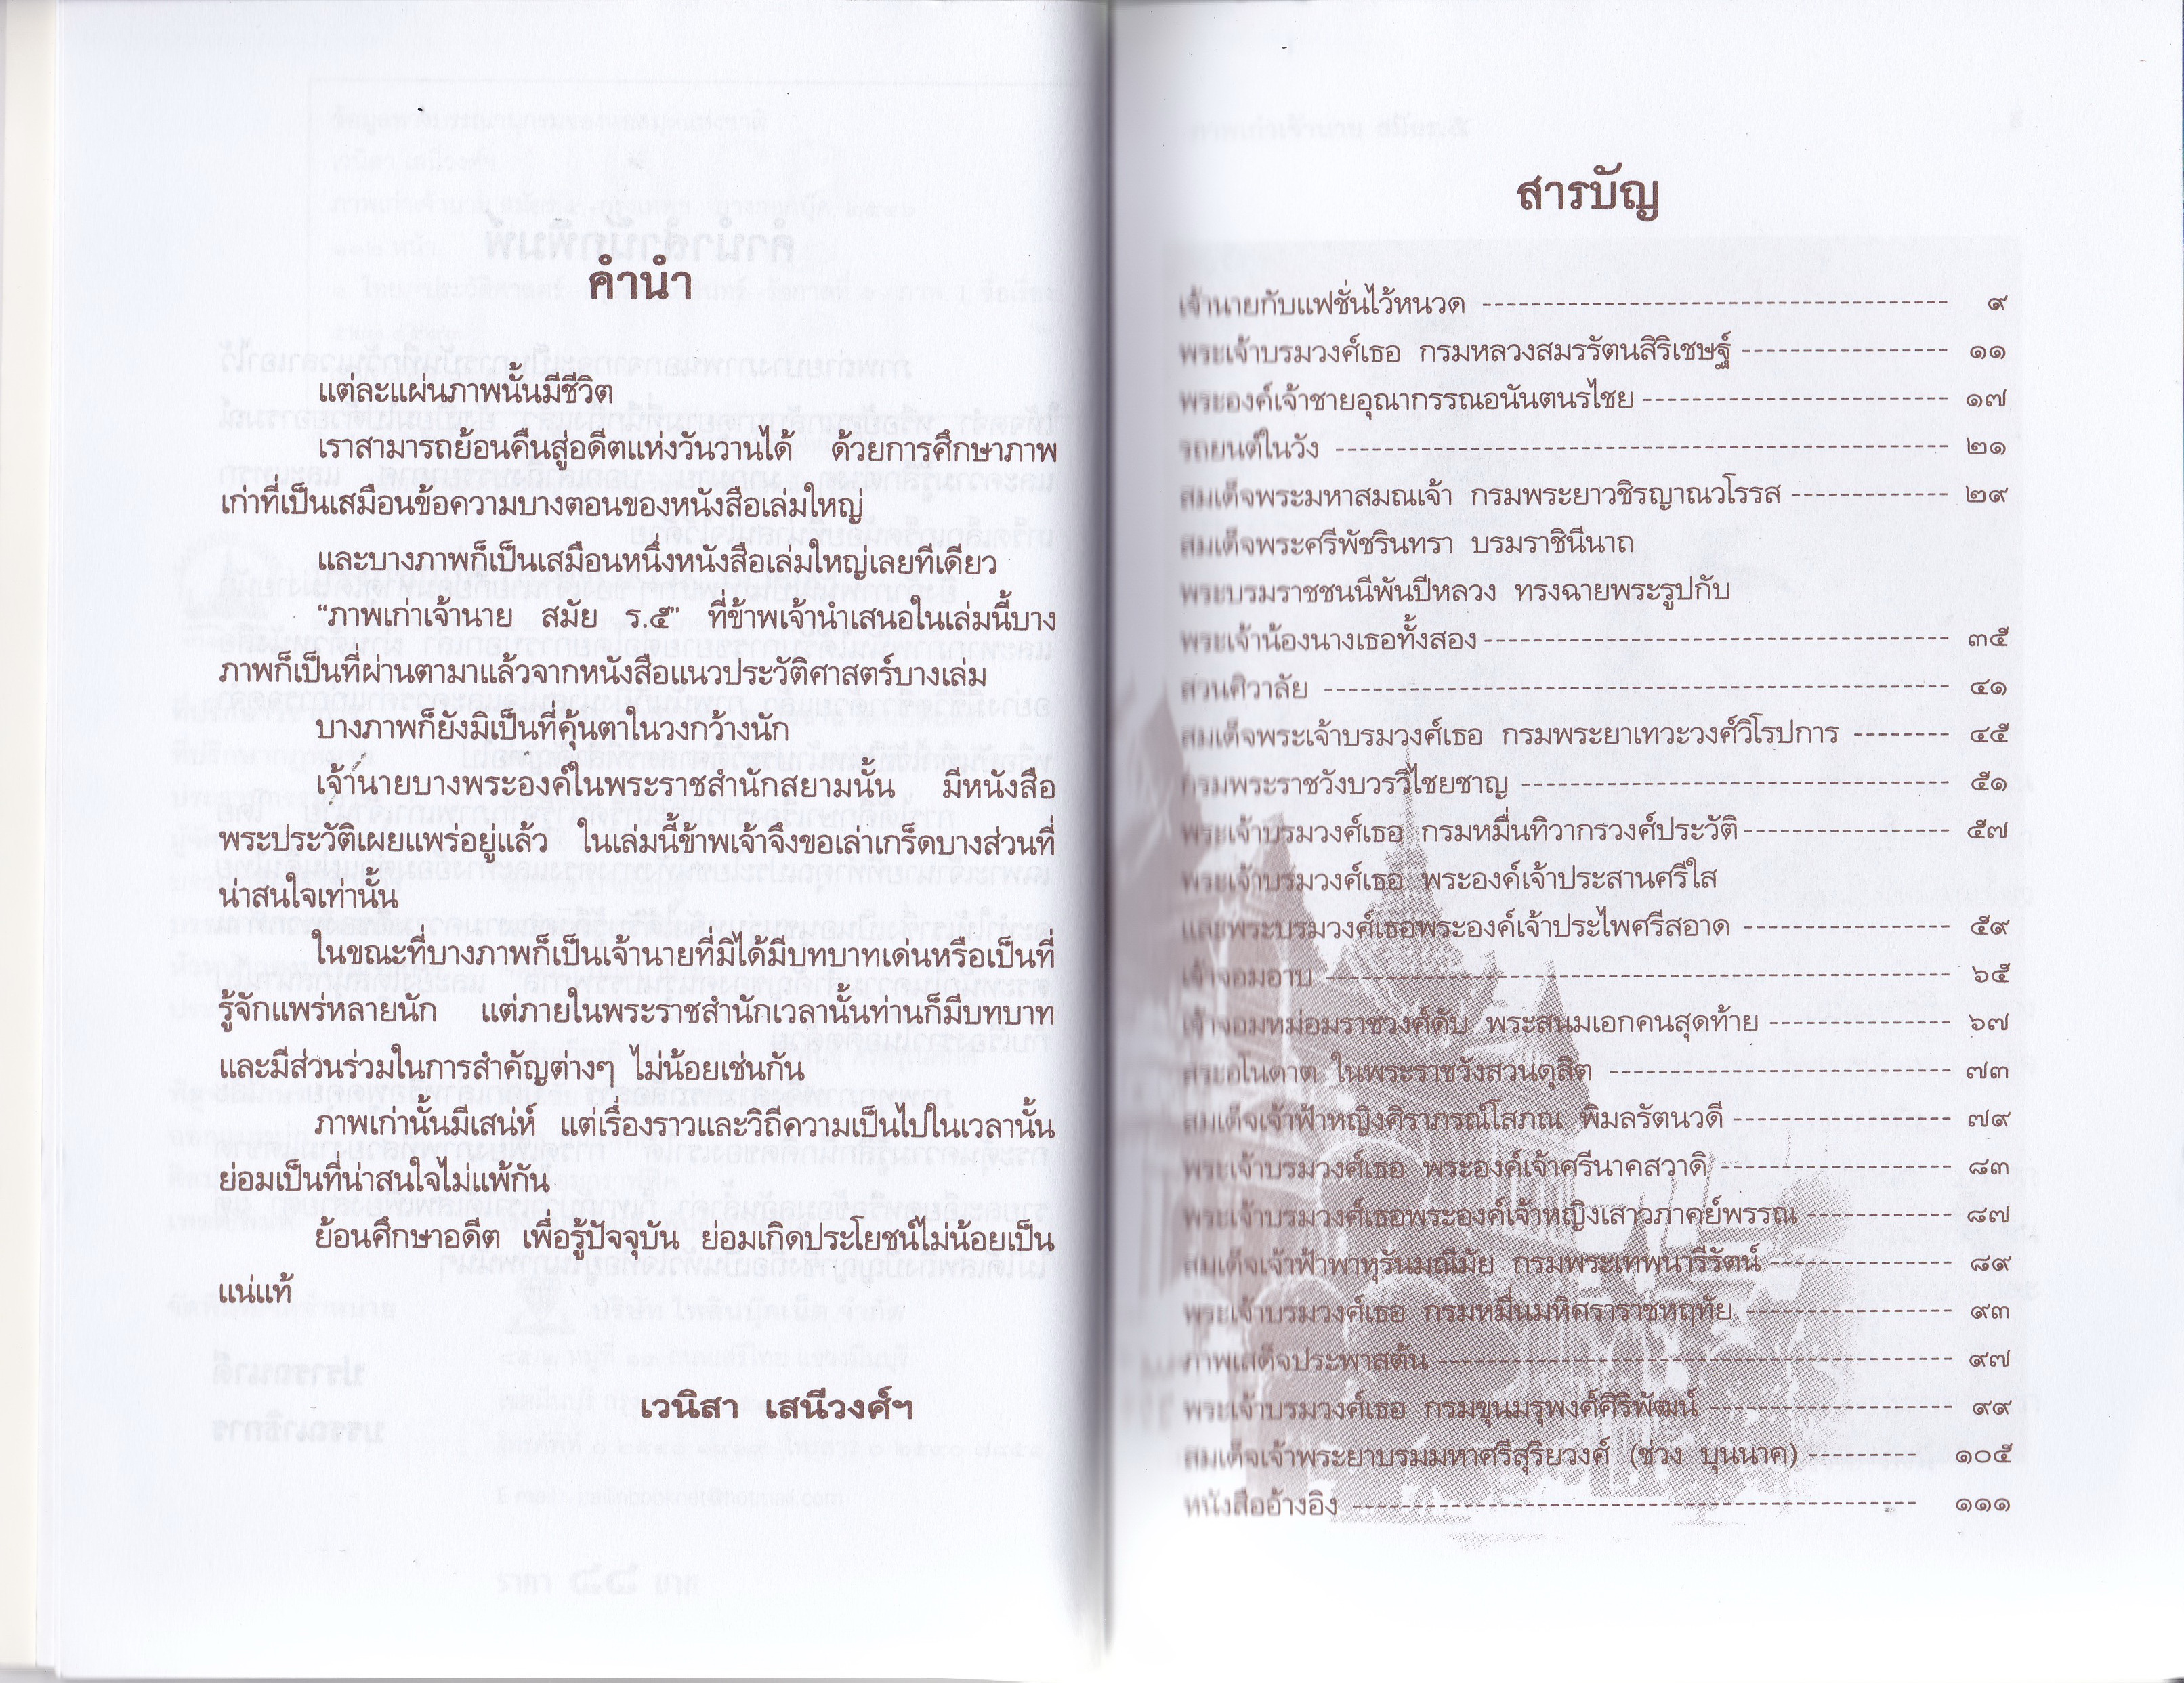 คำนำ
แต่ละแผ่นภาพนั้นมีชีวิต
เราสามารถย้อนคืนสู่อดีตแห่งวันวานได้ ด้วยการศึกษาภาพ
เก่าที่เป็นเสมือนข้อความบางตอนของหนังสือเล่มใหญ่
และบางภาพก็เป็นเสมือนหนึ่งหนังสือเล่มใหญ่เลยทีเดียว
“ภาพเก่าเจ้านาย สมัย ร.๕” ที่ข้าพเจ้านำเสนอในเล่มนี้บาง
ภาพก็เป็นที่ผ่านตามาแล้วจากหนังสือแนวประวัติศาสตร์บางเล่ม
บางภาพก็ยังมิเป็นที่คุ้นตาในวงกว้างนัก
เจ้านายบางพระองค์ในพระราชสำนักสยามนั้น มีหนังสือ
พระประวัติเผยแพร่อยู่แล้ว ในเล่มนี้ข้าพเจ้าจึงขอเล่าเกร็ดบางส่วนที่
น่าสนใจเท่านั้น
ในขณะที่บางภาพก็เป็นเจ้านายที่มิได้มีบทบาทเด่นหรือเป็นที่
รู้จักแพร่หลายนัก แต่ภายในพระราชสำนักเวลานั้นท่านก็มีบทบาท
และมีส่วนร่วมในการสำคัญต่างๆ ไม่น้อยเช่นกัน
ภาพเก่านั้นมีเสน่ห์ แต่เรื่องราวและวิถีความเป็นไปในเวลานั้น
ย่อมเป็นที่น่าสนใจไม่แพ้กัน
ย้อนศึกษาอดีต เพื่อรู้ปัจจุบัน ย่อมเกิดประโยชน์ไม่น้อยเป็น
แน่แท้
เวนิสา เสนีวงศ์ฯ
สารบัญ
เจ้านายกับแฟชั่นไว้หนวด ------------------------------------- ๙
พระเจ้าบรมวงศ์เธอ กรมหลวงสมรรัตนสิริเชษฐ์ ----------------- ๑๑
พระองค์เจ้าชายอุณากรรณอนันตนรไชย ------------------------- ๑๗
รถยนต์ในวัง -------------------------------------------------- ๒๑
สมเด็จพระมหาสมณเจ้า กรมพระยาวชิรญาณวโรรส ------------- ๒๙
สมเด็จพระศรีพัชรินทรา บรมราชินีนาถ
พระบรมราชชนนีพันปีหลวง ทรงฉายพระรูปกับ
พระเจ้าน้องนางเธอทั้งสอง -------------------------------------- ๓๕
สวนศิวาลัย --------------------------------------------------- ๔๑
สมเด็จพระเจ้าบรมวงศ์เธอ กรมพระยาเทวะวงศ์วิโรปการ -------- ๔๕
กรมพระราชวังบวรวิไชยชาญ ----------------------------------- ๕๑
พระเจ้าบรมวงศ์เธอ กรมหมื่นทิวากรวงศ์ประวัติ ----------------- ๕๗
พระเจ้าบรมวงศ์เธอ พระองค์เจ้าประสานศรีใส
และพระบรมวงศ์เธอพระองค์เจ้าประไพศรีสอาด ----------------- ๕๙
เจ้าจอมอาบ --------------------------------------------------- ๖๕
เจ้าจอมหม่อมราชวงศ์ดับ พระสนมเอกคนสุดท้าย --------------- ๖๗
สระอโนดาต ในพระราชวังสวนดุสิต ---------------------------- ๗๓
สมเด็จเจ้าฟ้าหญิงศิราภรณ์โสภณ พิมลรัตนวดี ------------------ ๗๙
พระเจ้าบรมวงศ์เธอ พระองค์เจ้าศรีนาคสวาดิ ------------------- ๘๓
พระเจ้าบรมวงศ์เธอพระองค์เจ้าหญิงเสาวภาคย์พรรณ ------------ ๘๗
สมเด็จเจ้าฟ้าพาหุรันมณีมัย กรมพระเทพนารีรัตน์ --------------- ๘๙
พระเจ้าบรมวงศ์เธอ กรมหมื่นมหิศราราชหฤทัย ----------------- ๙๓
ภาพเสด็จประพาสต้น ------------------------------------------ ๙๗
พระเจ้าบรมวงศ์เธอ กรมขุนมรุพงศ์ศิริพัฒน์ -------------------- ๙๙
สมเด็จเจ้าพระยาบรมมหาศรีสุริยวงศ์ (ช่วง บุนนาค) --------- ๑๐๕
หนังสืออ้างอิง ---------------------------------------------- ๑๑๑